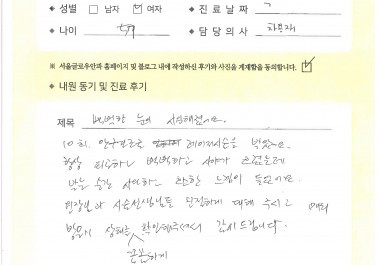 ◆ 성별 □ 남자 ☑ 여자 ◆ 진료날짜
◆ 나이 ◆ 담당의사
※ 서울글로우안과 홈페이지 및 블로그 내에 작성하신 후기와 사진을 게재함을 동의합니다. ☑
◆ 내원 동기 및 진료 후기
제목 뻑뻑한 눈이 시원해졌어요.
10회 안구건조 레이저시술을 받았어요.
항상 피곤하고 뻑뻑하고 시야가 흐렸는데
받는 순간 시원하고 환한 느낌이 들었어요.
원장님과 시술선생님들 친절하게 대해 주시고 매회
방문시 상태를 꼼꼼하게 확인해주셔서 감사드립니다.